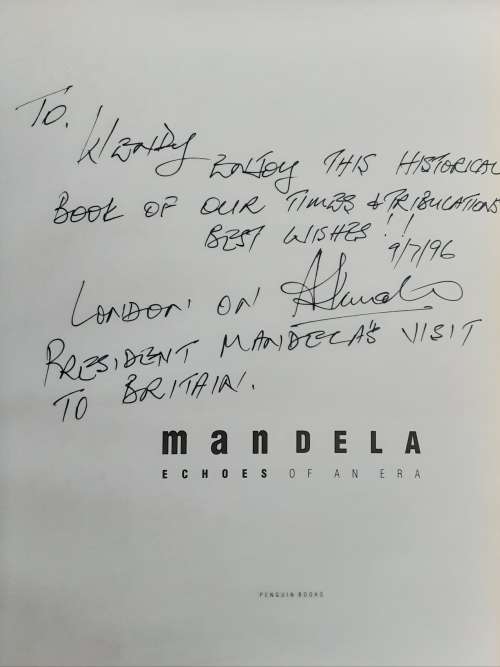 TO.
WENDY ENJOY THIS HISTORICAL
BOOK OF OUR TIMES & TRIBULATIONS
BEST WISHES!!
9/7/96
LONDON ON
PRESIDENT MANDELA'S VISIT
TO BRITAIN.
manDELA
ECHOES OF AN ERA
PENGUIN BOOKS